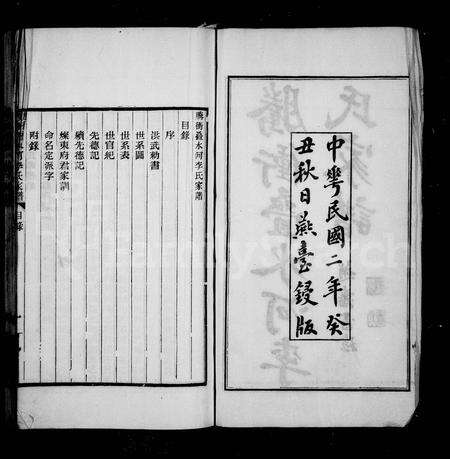 中華民國二年癸
丑秋日燕臺鋟版
騰衝疊水河李氏家譜
目錄
序
洪武勅書
世系圖
世系表
世官紀
先德記
續先德記
燦東府君家訓
命名定派字
附錄
目錄